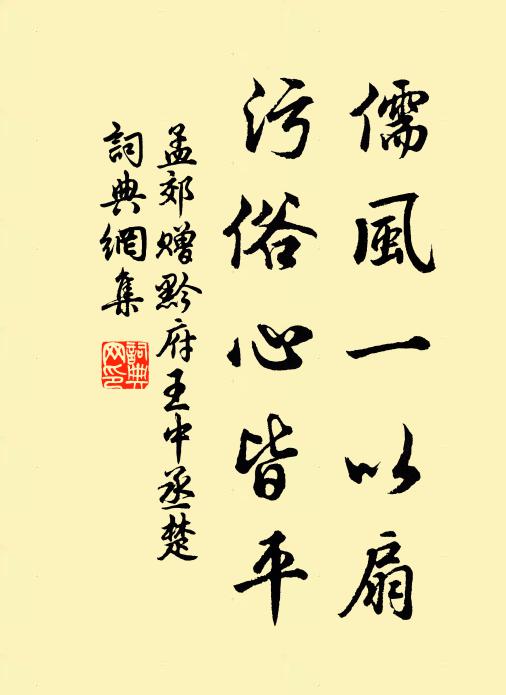 儒風一以扇
污俗心皆平
孟郊贈黔府王中丞楚
詞典網集
詞典網印